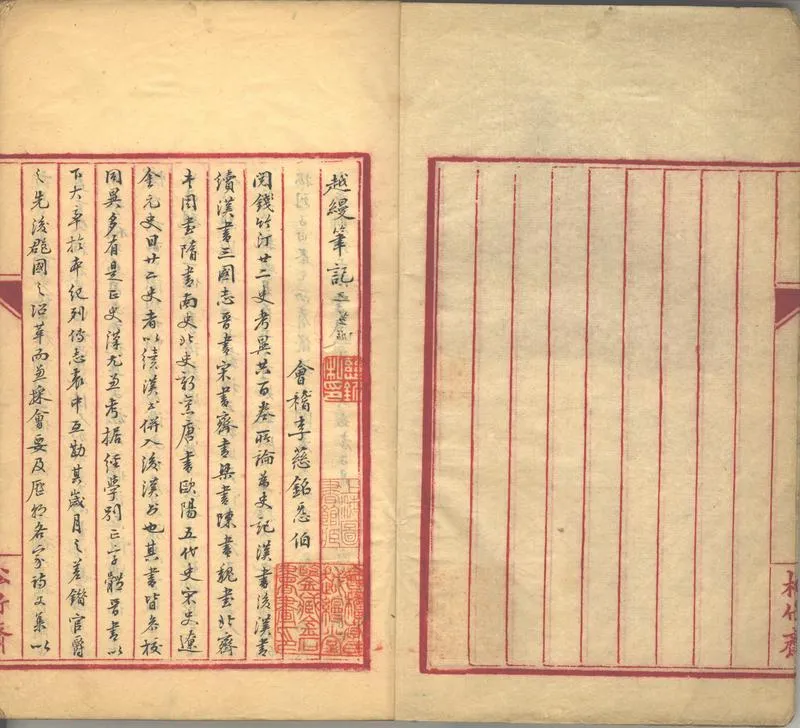 越縵筆記
會稽李慈銘㤅伯
閱錢竹汀廿二史考異共百卷所論爲史記漢書後漢書
續漢書三國志晉書宋書齊書梁書陳書魏書北齊
書周書隋書南史北史新舊唐書歐陽五代史宋史遼
金元史曰廿二史者以續漢書併入後漢書也其書皆參校
同異多有是正史漢尤兼考據經學別正字體晉書以
下大率於本紀列傳志表中互勘其歲月之差錯官爵
之先後郡國之沿革而兼採會要及歷朝各家詩文集以
松竹齋
松竹齋